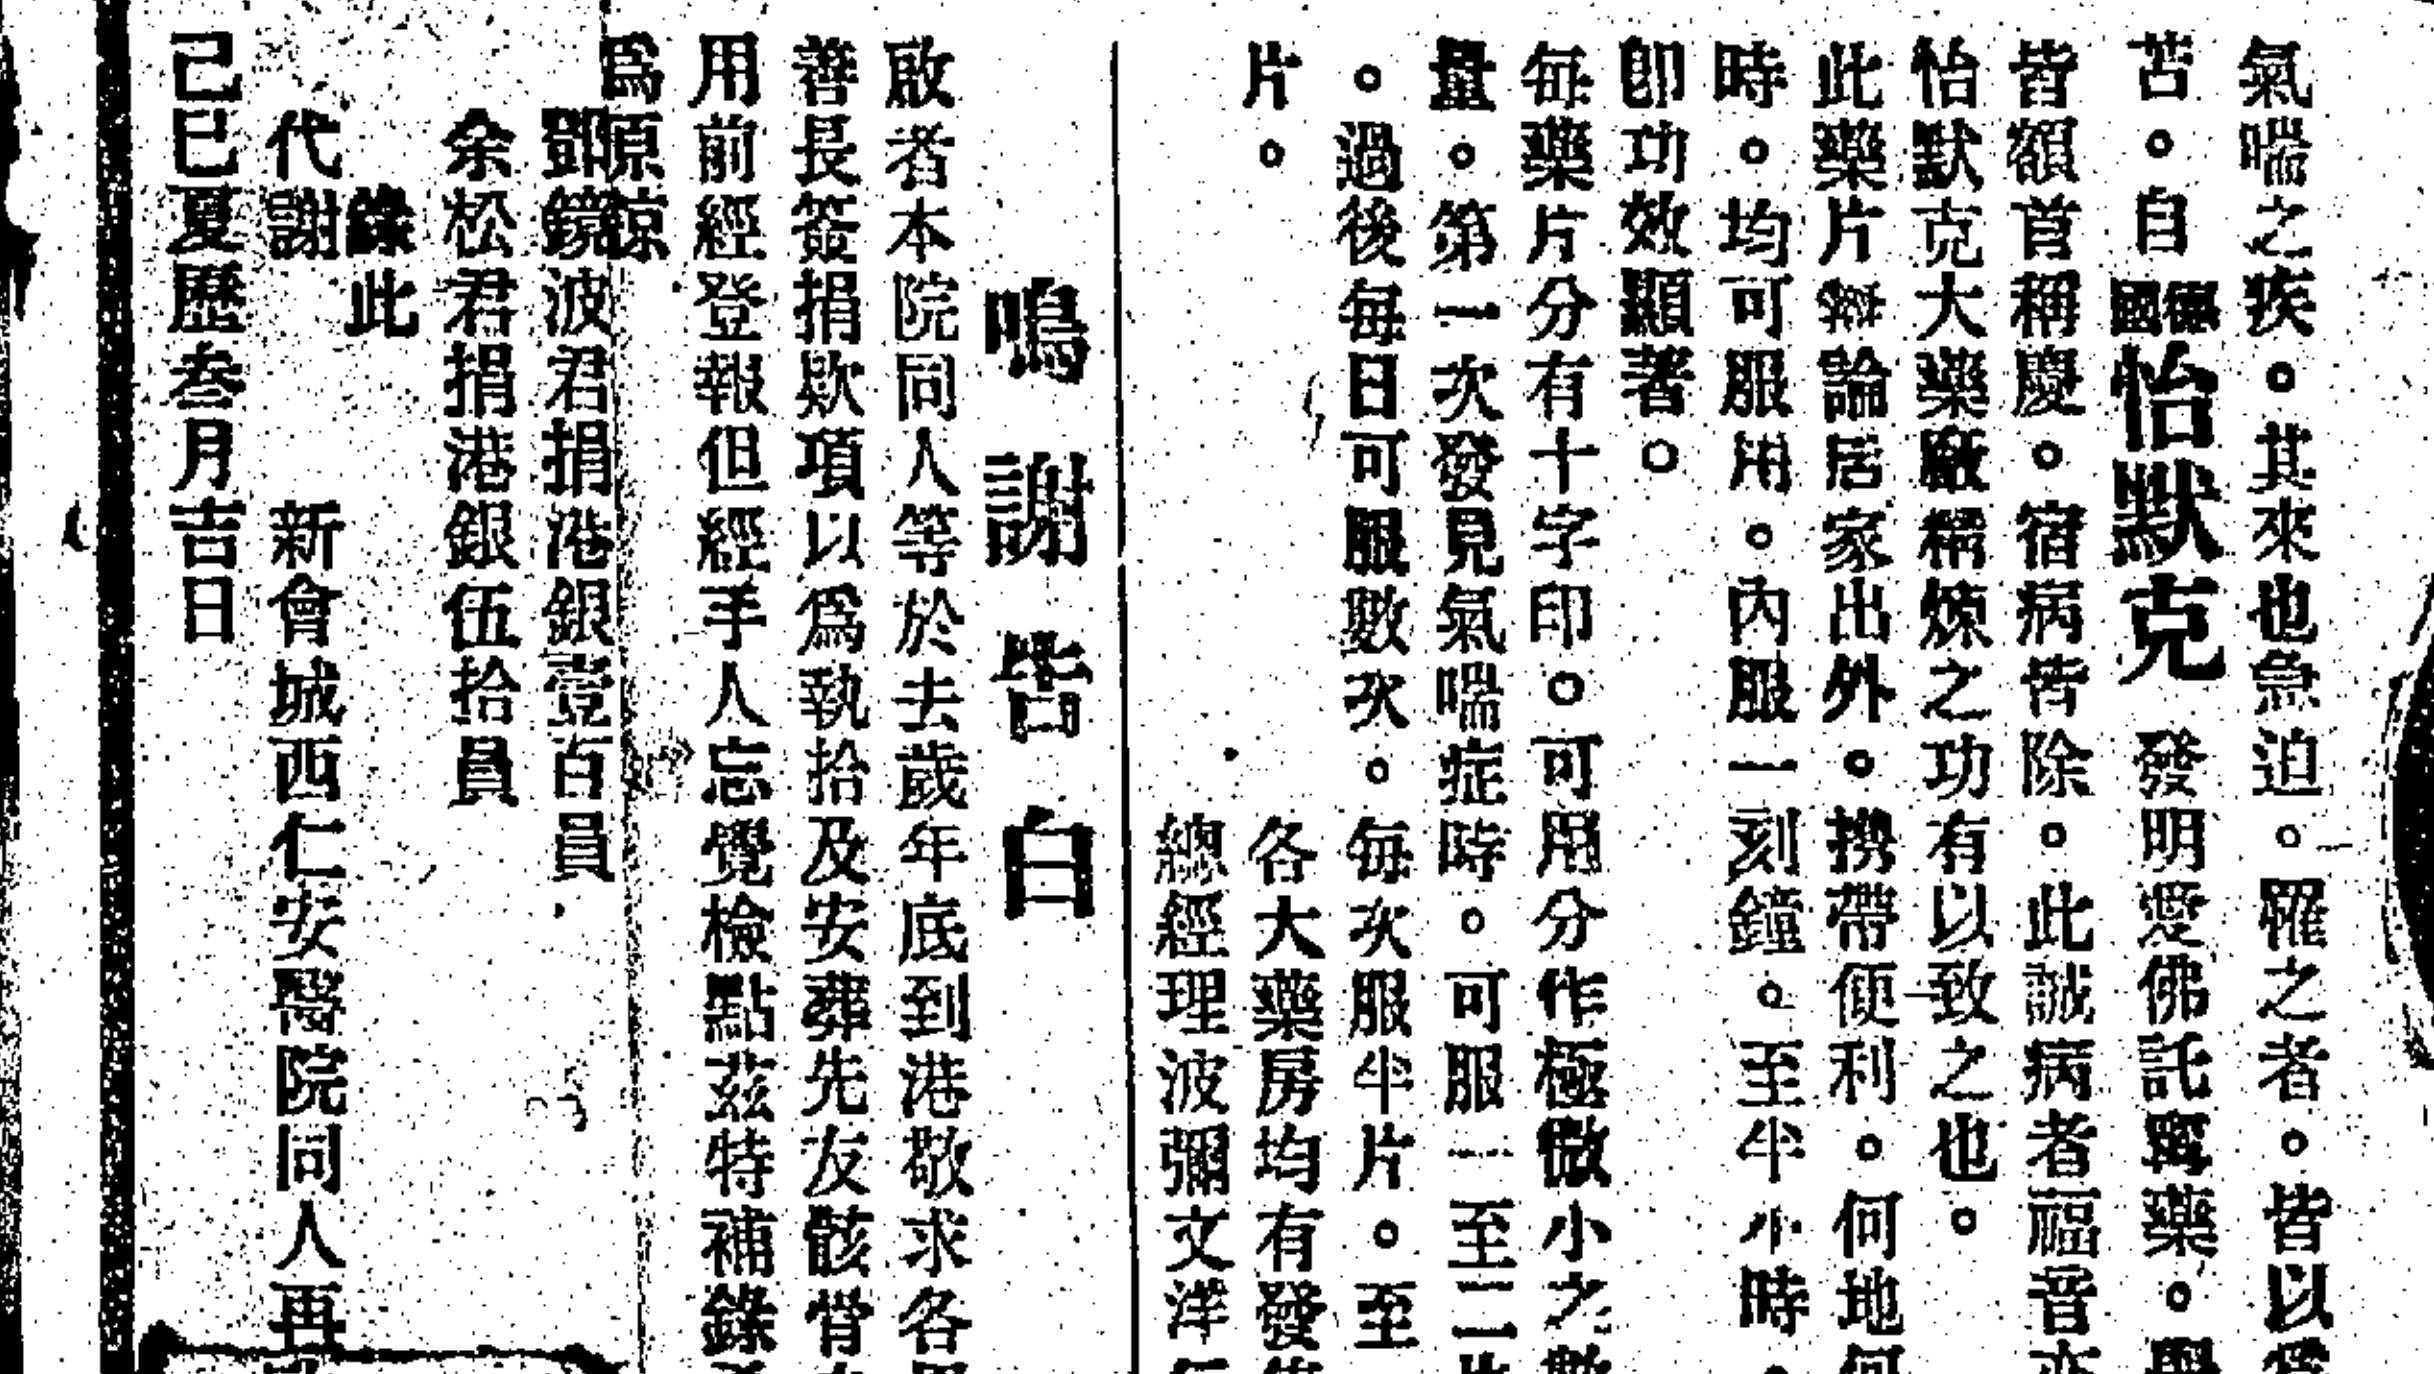 氣喘之疾。其來也急迫。罹之者。皆以
苦。自德國怡默克發明愛佛託寧藥。
皆額首稱慶。宿病皆除。此誠病者福音
怡默克大藥廠精煉之功有以致之也。
此藥片無論居家出外。携帶便利。何地何
時。均可服用。內服一刻鐘。至半小時。
卽功效顯著。
每藥片分有十字印。可用分作極微小之數
量。第一次發見氣喘症時。可服一至二片
。過後每日可服數次。每次服半片。至
片。
各大藥房均有發
總經理波彌文洋
鳴謝皆白
啟者本院同人等於去歲年底到港敬求各
善長簽捐欵項以爲執拾及安葬先友骸骨
用前經登報但經手人忘覺檢點茲特補錄
爲原諒
鄧鏡波君捐港銀壹百員
余松君捐港銀伍拾員
錄此
代謝 新會城西仁安醫院同人再
己巳夏歷叁月吉日